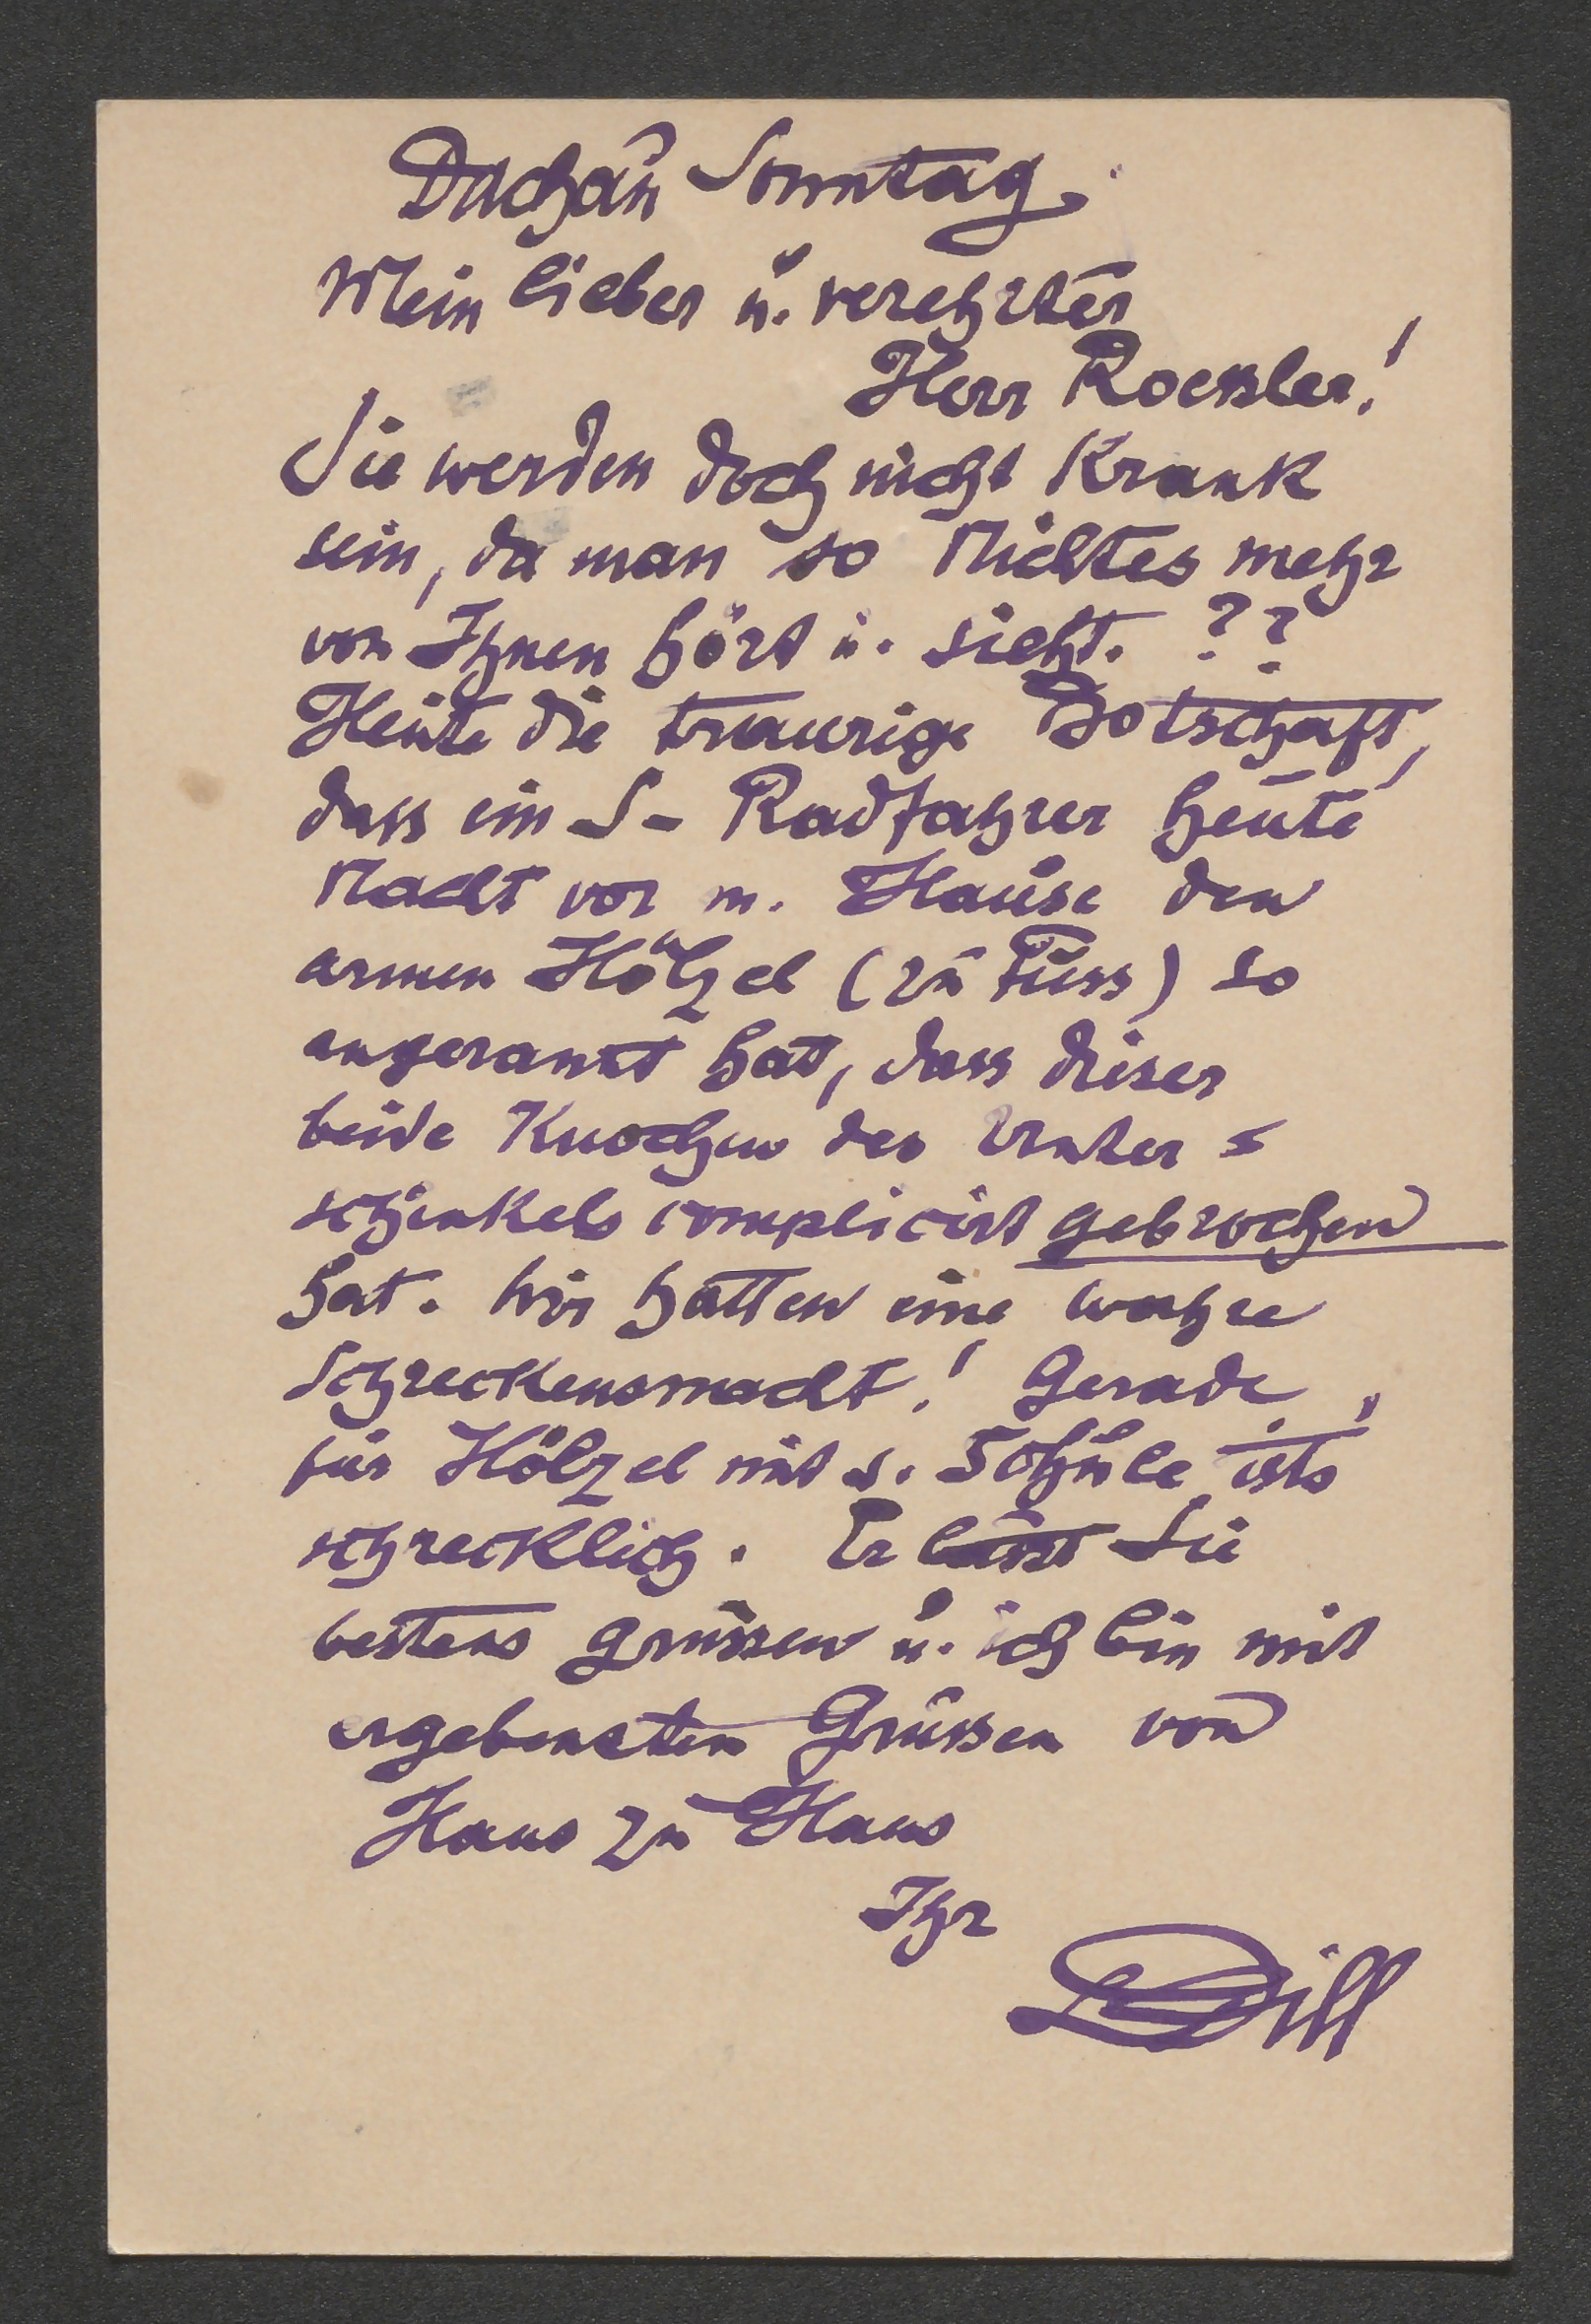 Dachau Sonntag
Mein lieber u. verehrter
Herr Roessler!
Sie werden doch nicht krank
sein, da man so Nichtes mehr
von Ihnen hört u. sieht. ??
Heute die traurige Botschaft,
dass ein S- Radfahrer heute
Nacht vor m. Hause den
armen Hölzel (zu Fuss) so
angerannt hat, dass dieser
beide Knochen des Unter=
schenkels complicirt gebrochen
hat. Wir hatten eine wahre
Schreckensnacht! Gerade
für Hölzel mit s. Schule ists
schrecklich. Er lässt Sie
bestens grüssen u. ich bin mit
ergebensten Grüssen von
Haus zu Haus
Ihr
LDill